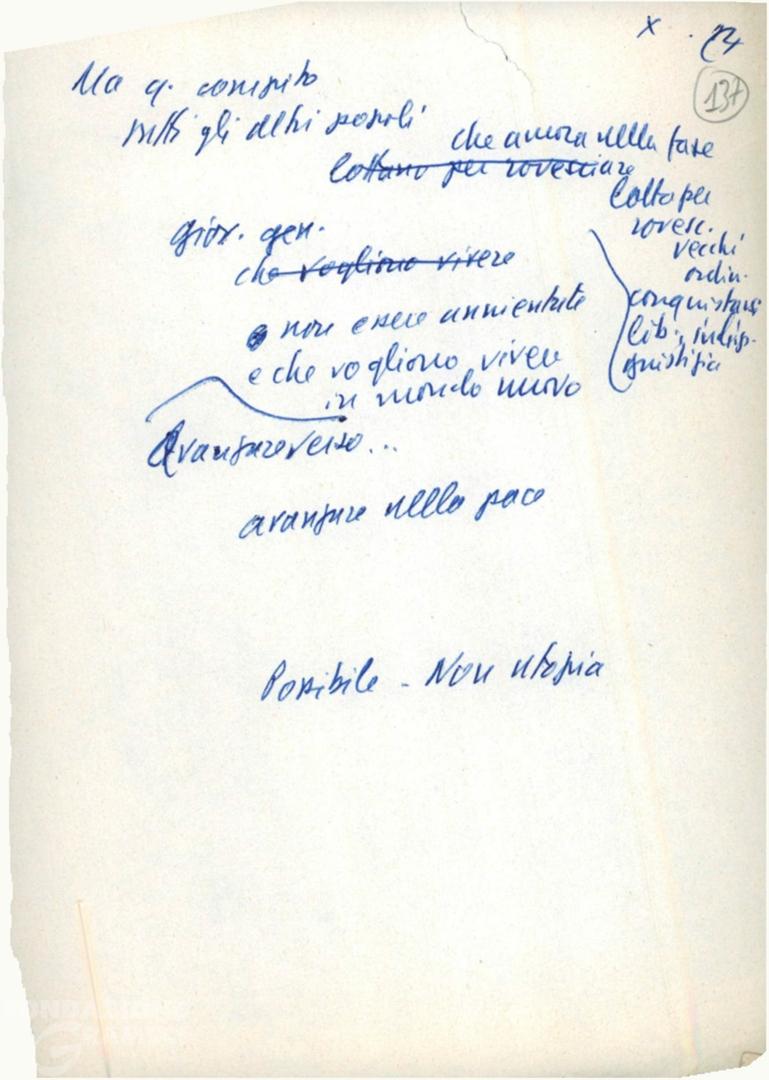 X . 24
137
Ma q. compito
tutti gli altri popoli
che ancora nella fase
lottano per rovesciare
lotta per
rovesc.
vecchi
ordin.
conquistarsi
lib., indip.
giustizia
giov. gen.
che vogliono vivere
non essere annientate
e che vogliono vivere
in mondo nuovo
Avanzare verso...
avanzare nella pace
Possibile - Non utopia
FONDAZIONE
GRAMSCI